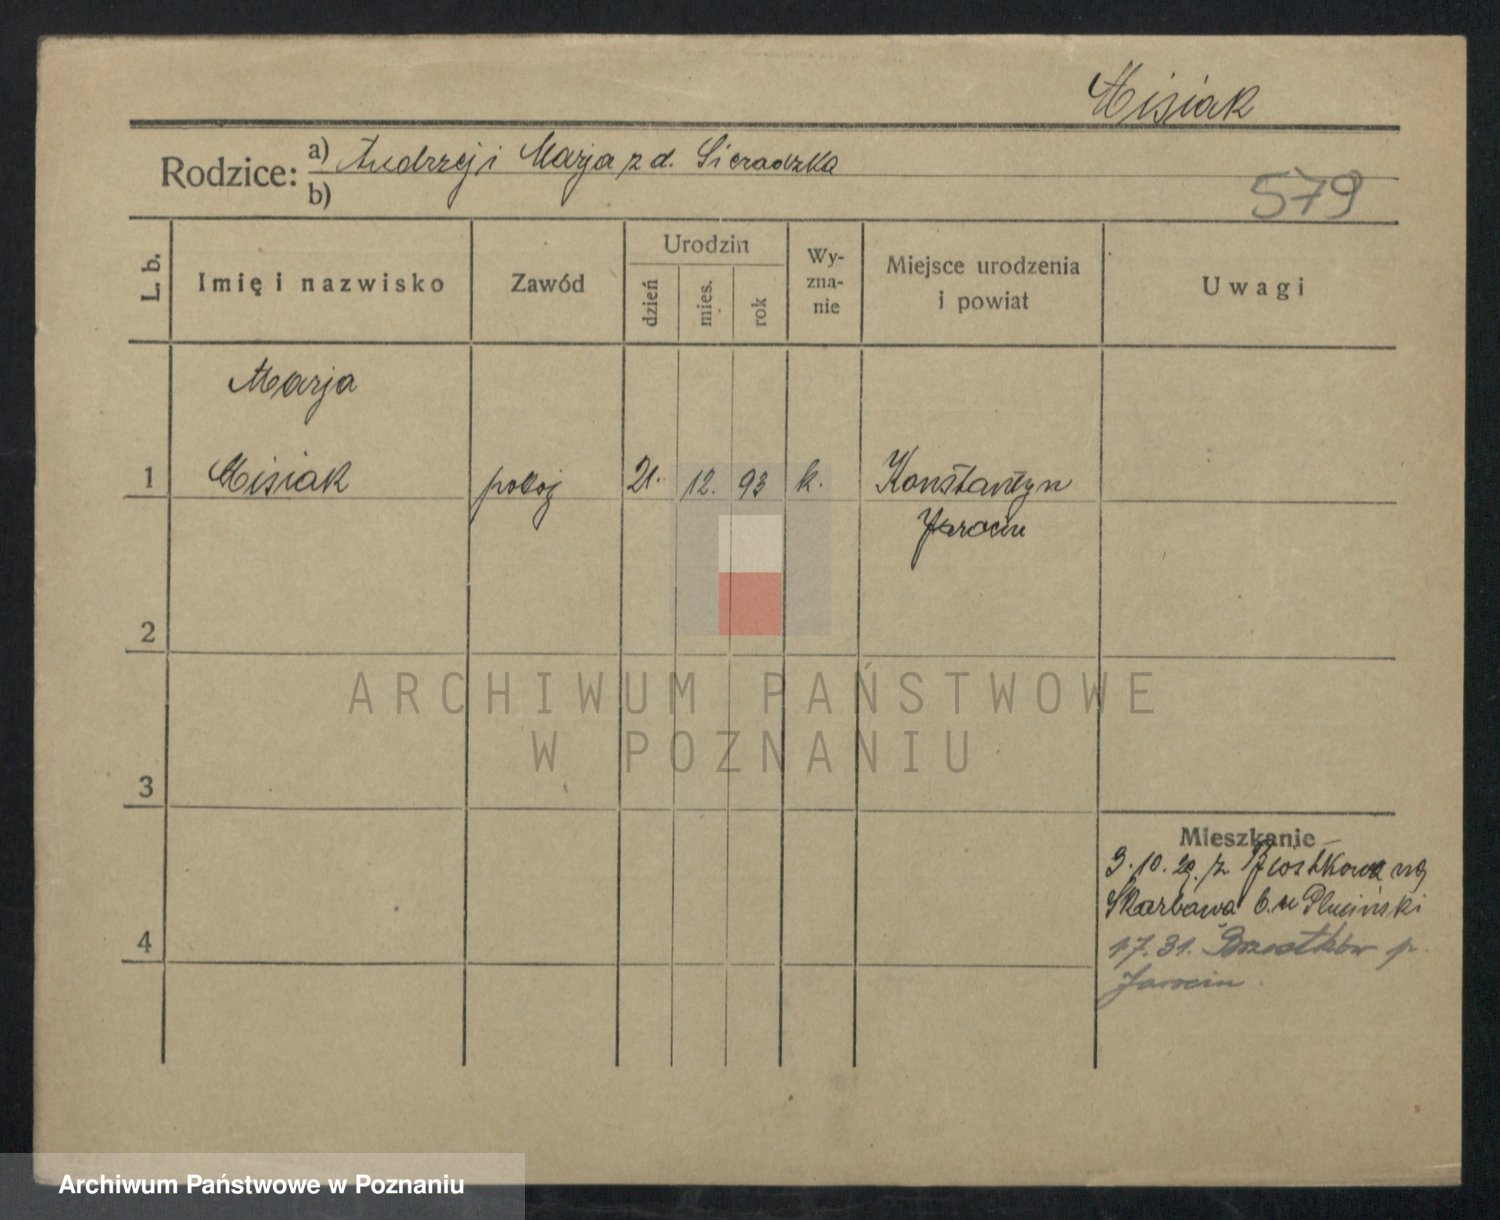 Misiak
Rodzice: a) Andrzej i Marja z d. Sieradzka
b)
579
L. b.
Imię i nazwisko
Zawód
Urodzin
dzień
mies.
rok
Wy-
zna-
nie
Miejsce urodzenia
i powiat
Uwagi
Marja
1 Misiak pokoj 21. 12. 93 k. Konstantyn
Jarocin
2
3
4
Mieszkanie
3.10.29. z na
Skarbowa 6. u Pluciński
1.7.31. Brzostków p.
Jarocin.
ARCHIWUM PAŃSTWOWE
W POZNANIU
Archiwum Państwowe w Poznaniu